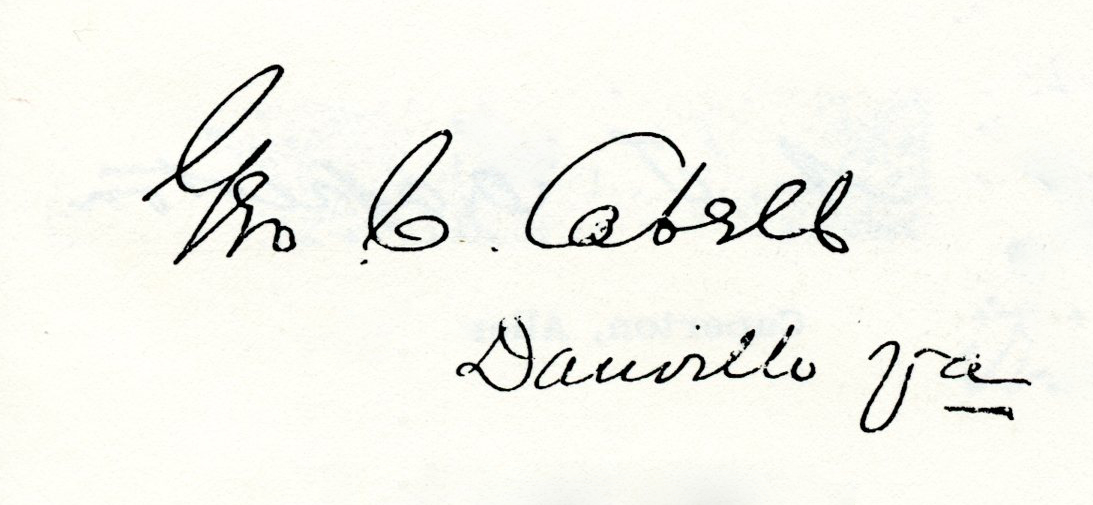 Geo C. Cabell
Danville Va